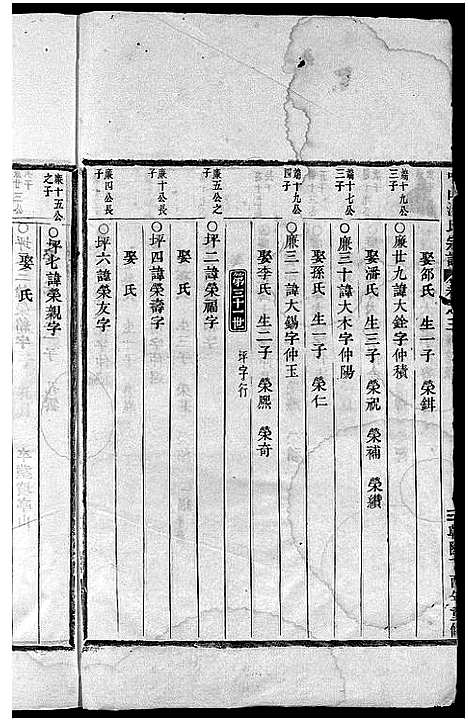 娶邵氏 生一子 榮鉺
端十九公三子
○廉廿九諱大銓字仲積
娶潘氏 生三子 榮祝 榮補 榮纘
端十七公三子
○廉三十諱大木字仲陽
娶孫氏 生一子 榮仁
端十九公四子
○廉三一諱大錫字仲玉
娶李氏 生二子 榮熙 榮奇
第三十一世 坪字行
廉五公之子
○坪二諱榮福字
娶 氏
廉十公長子
○坪四諱榮壽字
娶 氏
廉四公長子
○坪六諱榮友字
娶 氏
廉十五公之子
○坪七諱榮親字